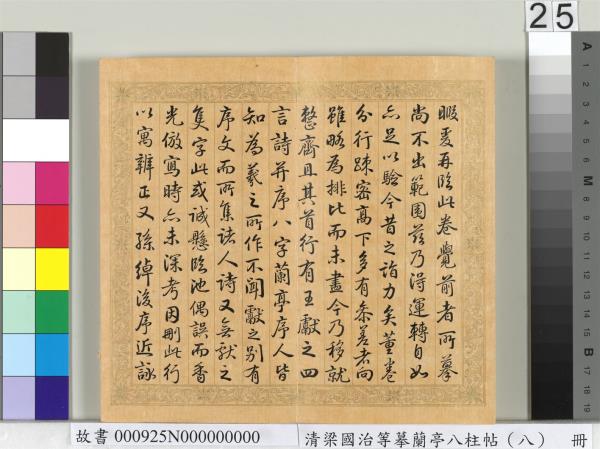 暇更再臨此卷覺前者所摹
尚不出範圍茲乃得運轉自如
亦足以驗今昔之詣力矣董卷
分行疎密高下多有參差者向
雖略為排比而未盡今乃移就
整齊且其首行有王獻之四
言詩并序八字蘭亭序人皆
知為羲之所作不聞獻之別有
序文而所集諸人詩又無獻之
隻字此或誠懸臨池偶誤而香
光倣寫時亦未深考因刪此行
以寓辨正又孫綽後序近詠
25
A
1
2
3
4
5
6
M
8
9
10
11
12
13
14
15
B
17
18
19
故書 000925N000000000
清梁國治等摹蘭亭八柱帖（八） 冊